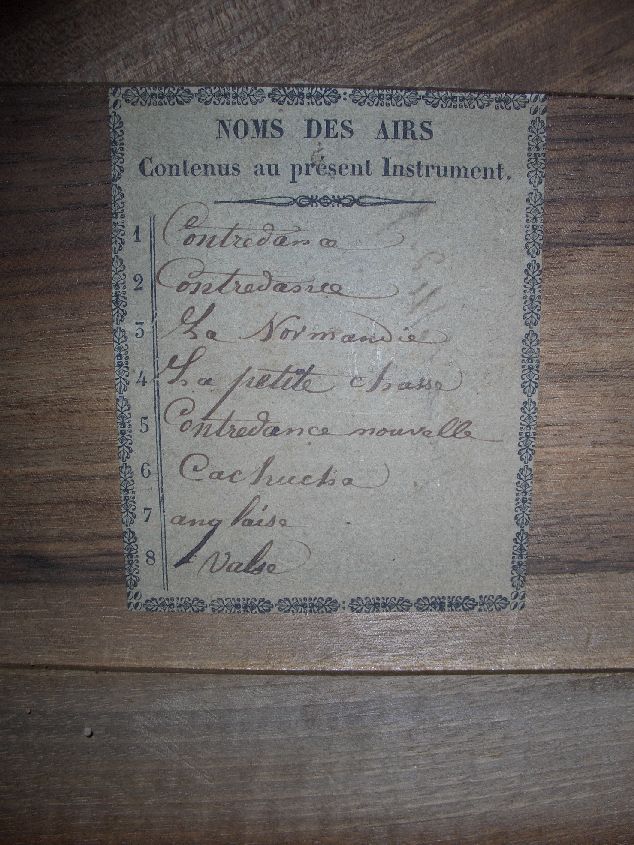 NOMS DES AIRS
Contenus au présent Instrument.
1 Contredance
2 Contredance
3 La Normandie
4 La petite chasse
5 Contredance nouvelle
6 Cachucha
7 anglaise
8 Valse